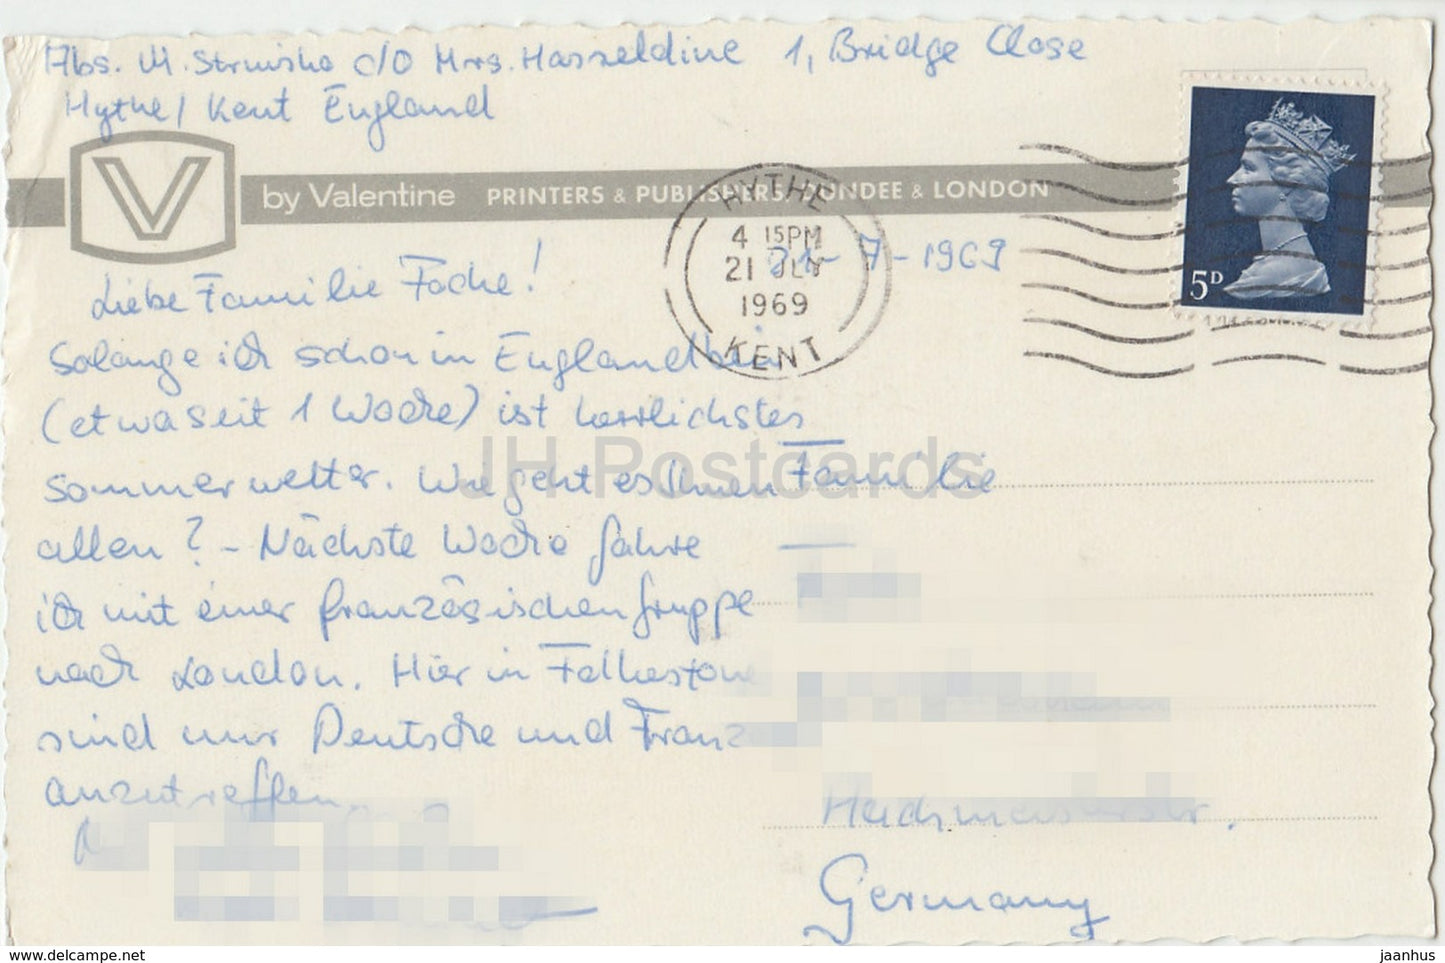 Abs. M. Struiska c/o Mrs. Hasseldine 1, Bridge Close
Hythe/ Kent England
V by Valentine PRINTERS & PUBLISHERS, DUNDEE & LONDON
HYTHE
4 15PM
21 JLY
1969
KENT
5D
21-7-1969
Liebe Familie Foche!
Solange ich schon in England bin
(etwa seit 1 Woche) ist herrlichstes
Sommerwetter. Wie geht es Ihnen
allen? - Nächste Woche fahre
ich mit einer französischen Gruppe
nach London. Hier in Folkestone
sind nur Deutsche und Franz
anzutreffen.
Familie
Germany
JH Postcards
www.delcampe.net
jaanhus